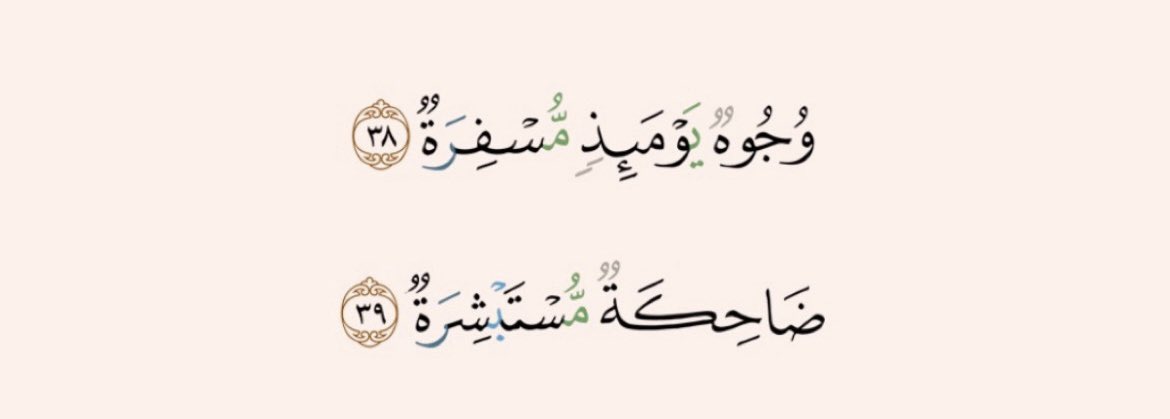 وُجُوهٌ يَوْمَئِذٍ مُّسْفِرَةٌ ٣٨
ضَاحِكَةٌ مُّسْتَبْشِرَةٌ ٣٩